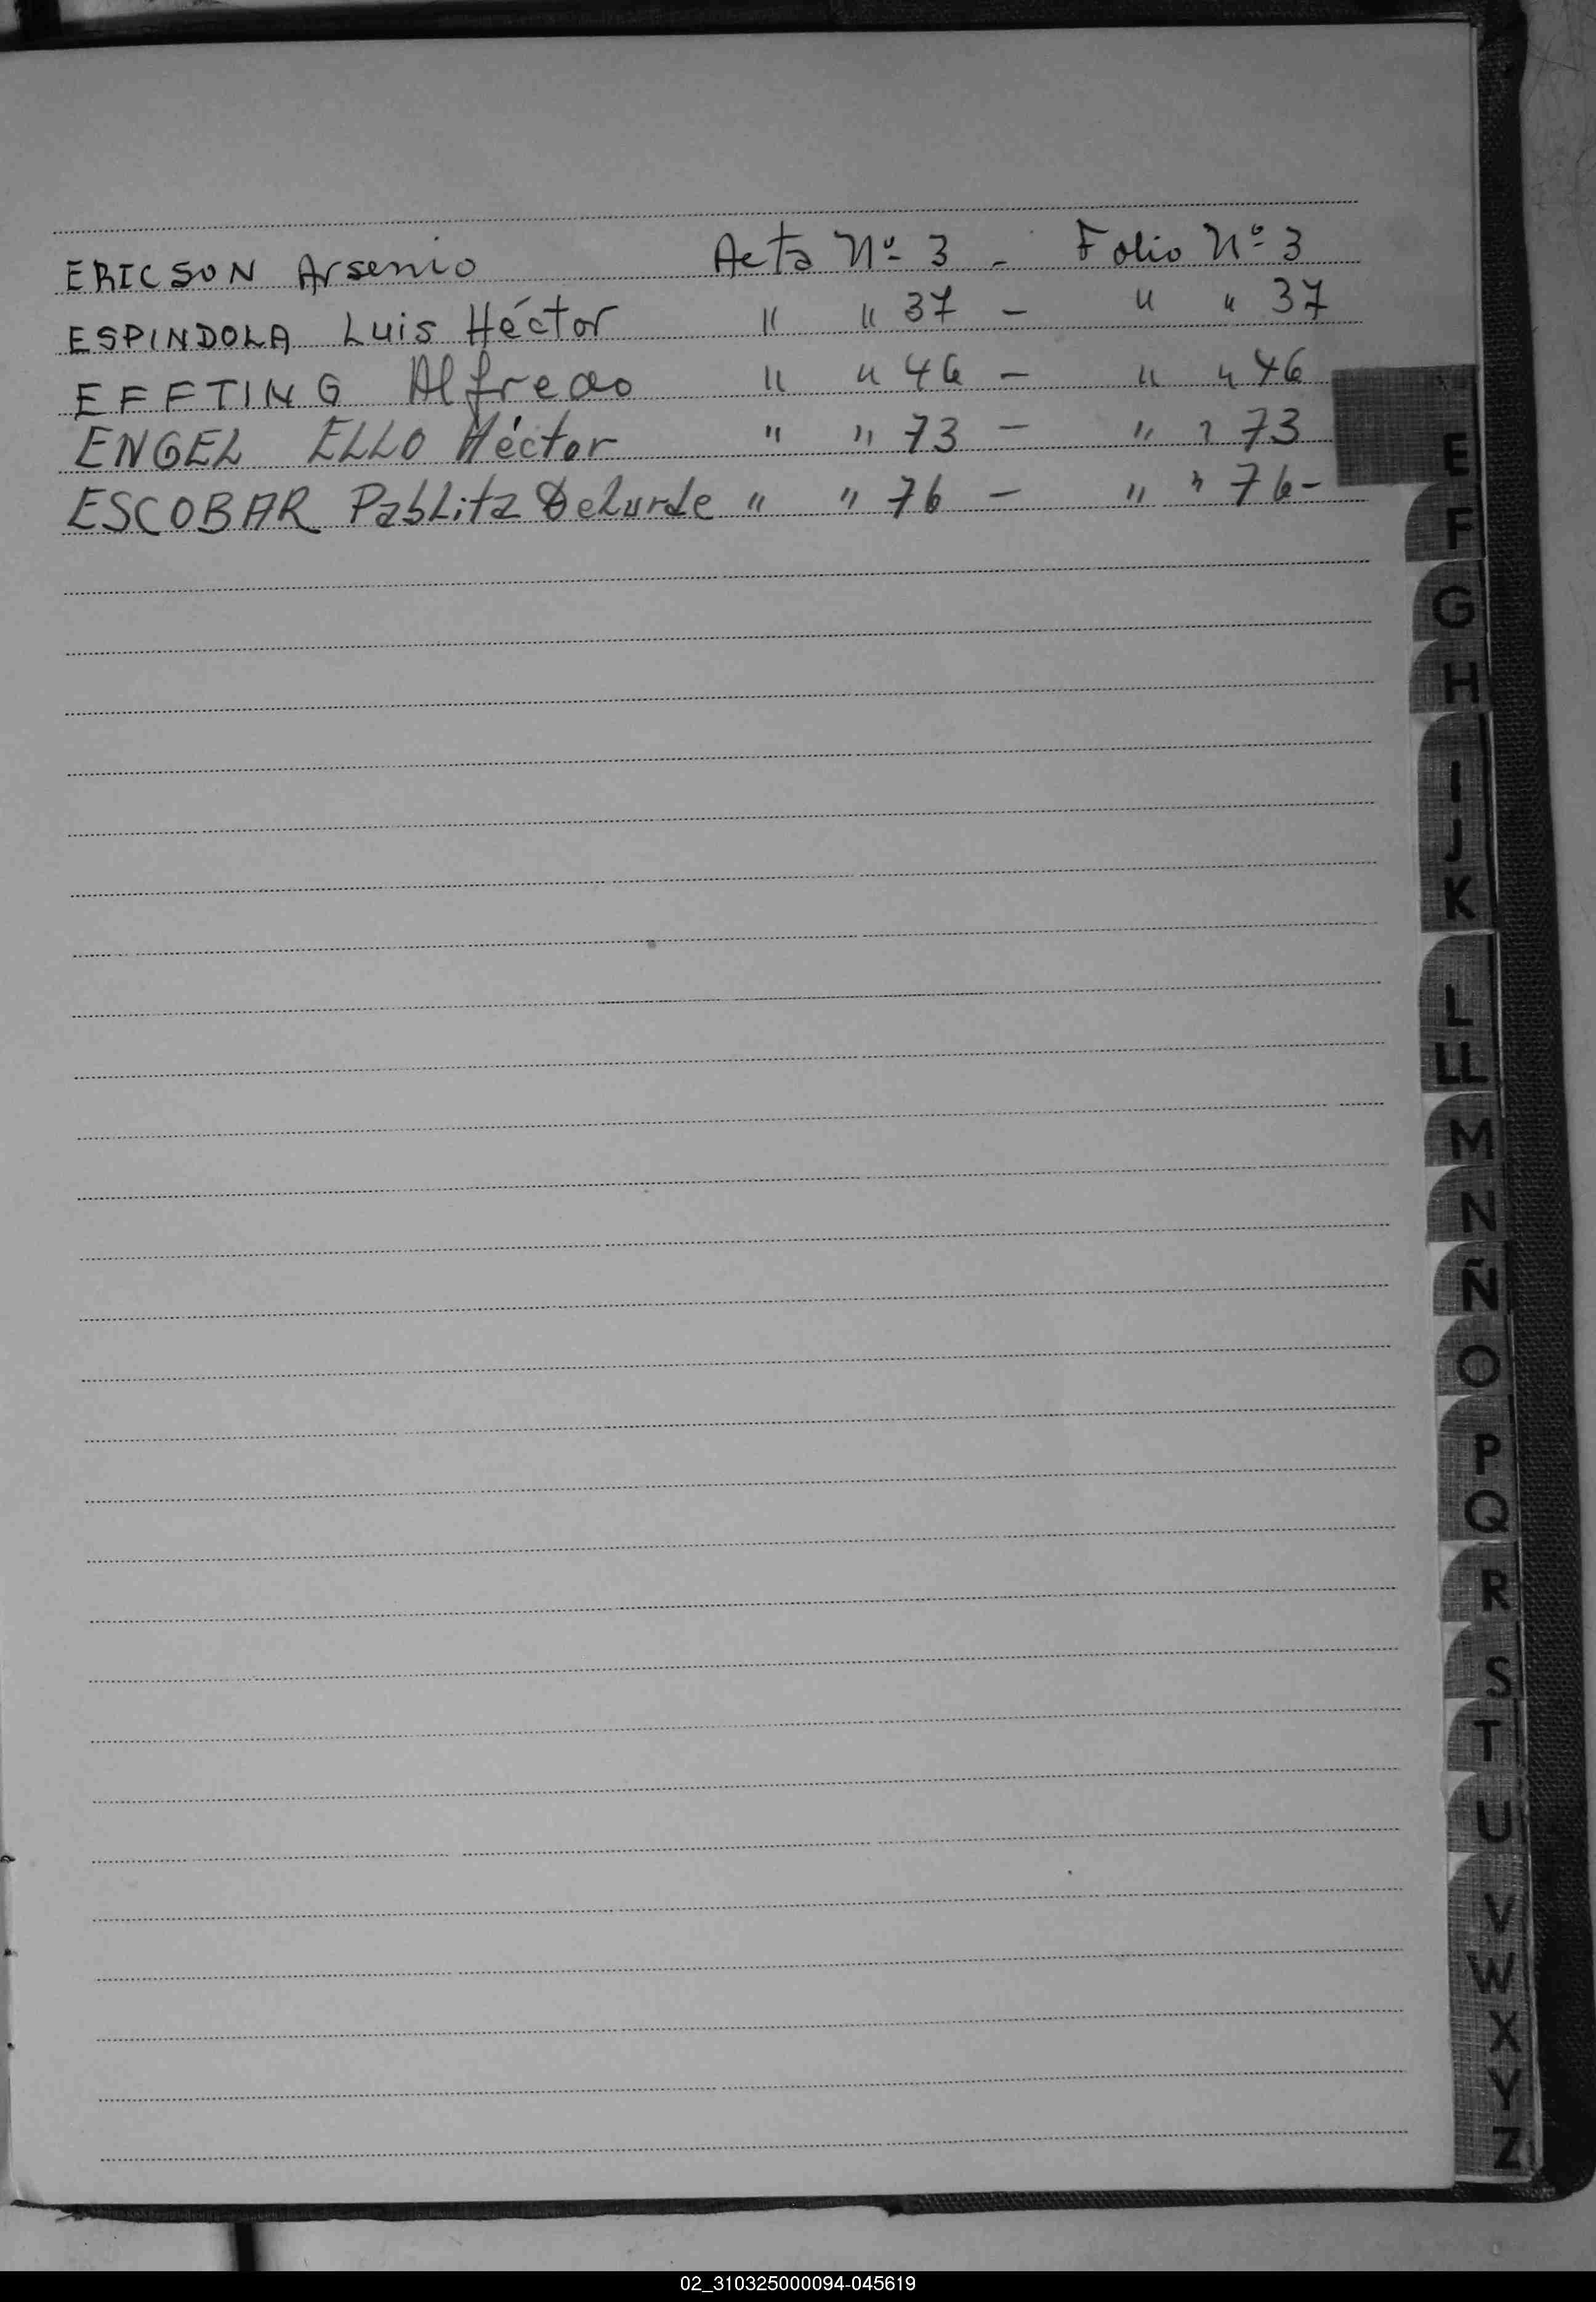 ERICSON Arsenio Acta Nº 3 - Folio Nº 3
ESPINDOLA Luis Héctor " " 37 - " " 37
EFFTING Alfredo " " 46 - " " 46
ENGEL ELLO Héctor " " 73 - " " 73
ESCOBAR Pablita DeLurde " " 76 - " " 76-
E
F
G
H
I
J
K
L
LL
M
N
Ñ
O
P
Q
R
S
T
U
V
W
X
Y
Z
02_310325000094-045619